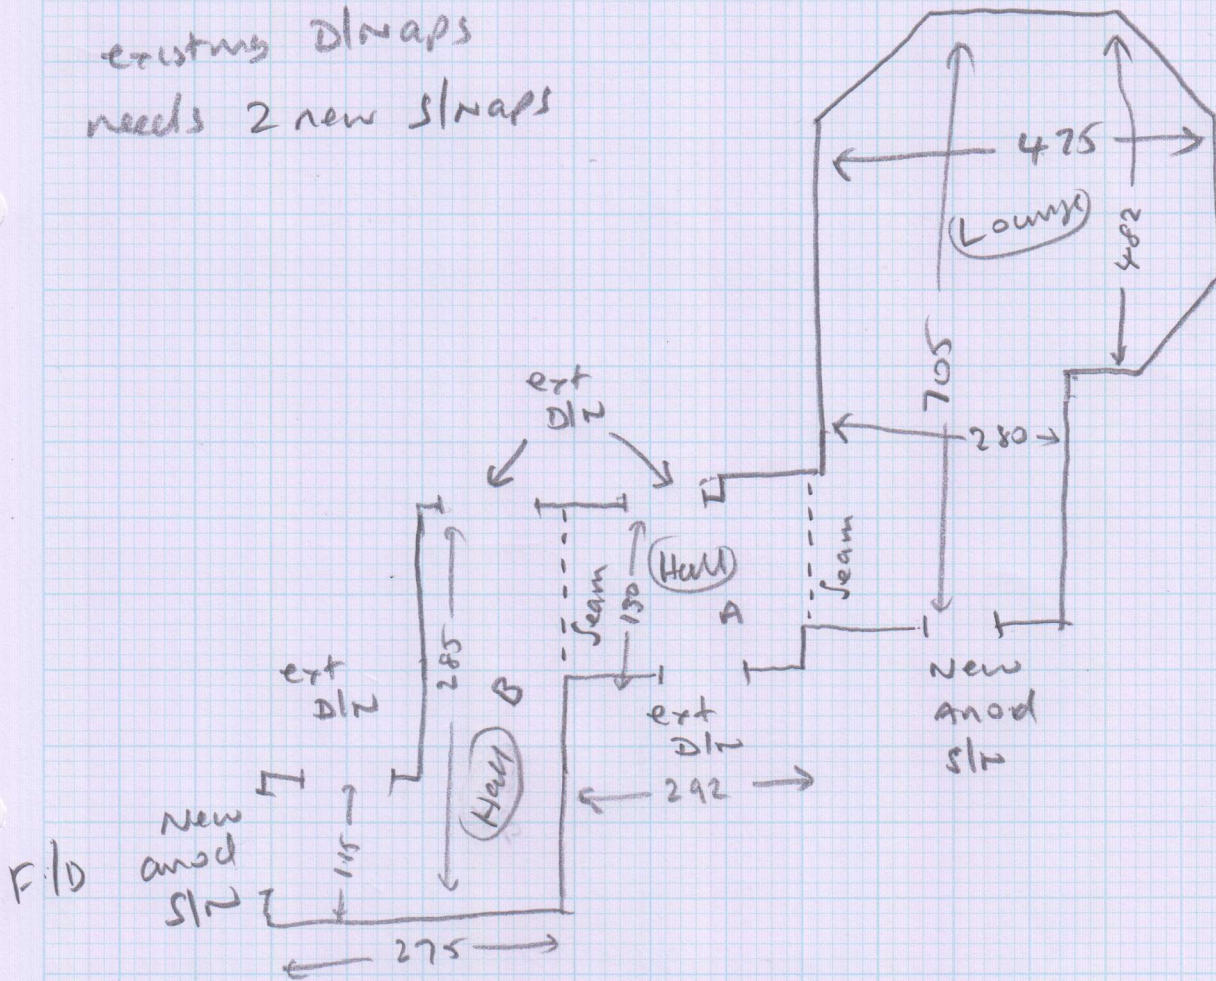 existing D/Naps
needs 2 new S/Naps
475
Lounge
482
705
280
ext
D/N
Seam
Hall
A
130
Seam
New
Anod
S/N
ext
D/N
285
B
Hall
ext
D/N
292
New
anod
S/N
F/D
115
275